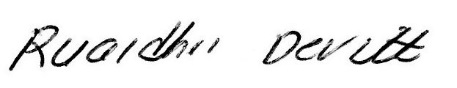 Ruaidhri Devitt